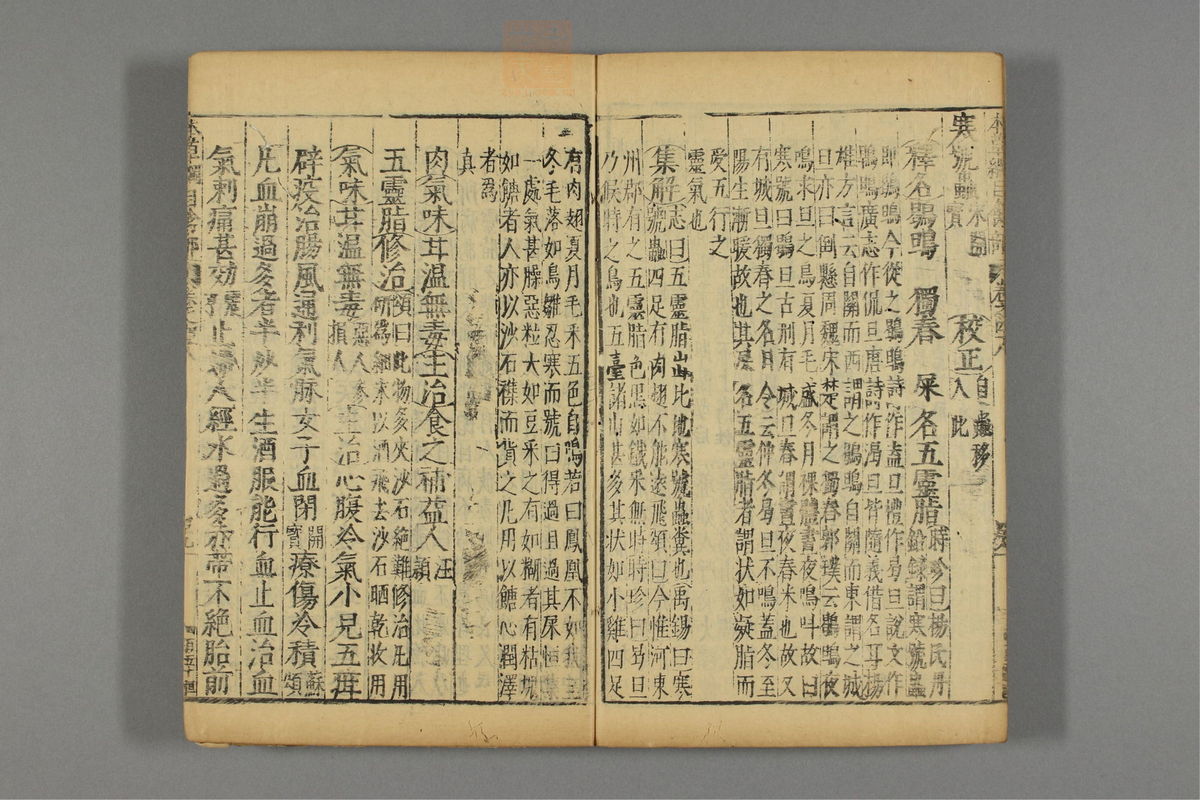 寒號蟲 宋開寶 校正 自蟲移入此
釋名 鶡鴠 獨春 屎名五靈脂 時珍曰楊氏丹鉛錄謂寒號蟲
即鶡鴠今從之鶡鴠詩作盍旦禮作曷旦說文作
鶡鴠廣志作侃旦唐詩作渴旦皆隨義借名耳楊
雄方言云自關而西謂之鶡鴠自關而東謂之城
旦亦曰倒懸周魏宋楚謂之獨舂郭璞云鶡鴠夜
鳴求旦之鳥夏月毛盛冬月裸體晝夜鳴叫故曰
寒號曰鶡旦古刑有城旦舂謂晝夜舂米也故又
有城旦獨舂之名月令云仲冬曷旦不鳴蓋冬至
陽生漸暖故也其屎名五靈脂者謂狀如凝脂而
受五行之
靈氣也
集解 志曰五靈脂出北地寒號蟲糞也禹錫曰寒
號蟲四足有肉翅不能遠飛頌曰今惟河東
州郡有之五靈脂色黑如鐵采無時時珍曰曷旦
乃候時之鳥也五臺諸山甚多其狀如小雞四足
有肉翅夏月毛采五色自鳴若曰鳳凰不如我至
冬毛落如鳥雛忍寒而號曰得過且過其屎恒集
一處氣甚臊惡粒大如豆采之有如糊者有粘塊
如餹者人亦以沙石襍而貨之凡用以餹心潤澤
者為
真
肉氣味 甘溫無毒 主治 食之補益人 汪穎
五靈脂 修治 頌曰此物多夾沙石絕難修治凡用研為細末以酒飛去沙石晒乾收用
氣味 甘溫無毒 惡人參損人 主治 心腹冷氣小兒五疳
辟疫治腸風通利氣脉女子血閉 開寶 療傷冷積 蘇頌
凡血崩過多者半炒半生酒服能行血止血治血
氣刺痛甚効 震亨 止婦人經水過多赤帶不絕胎前